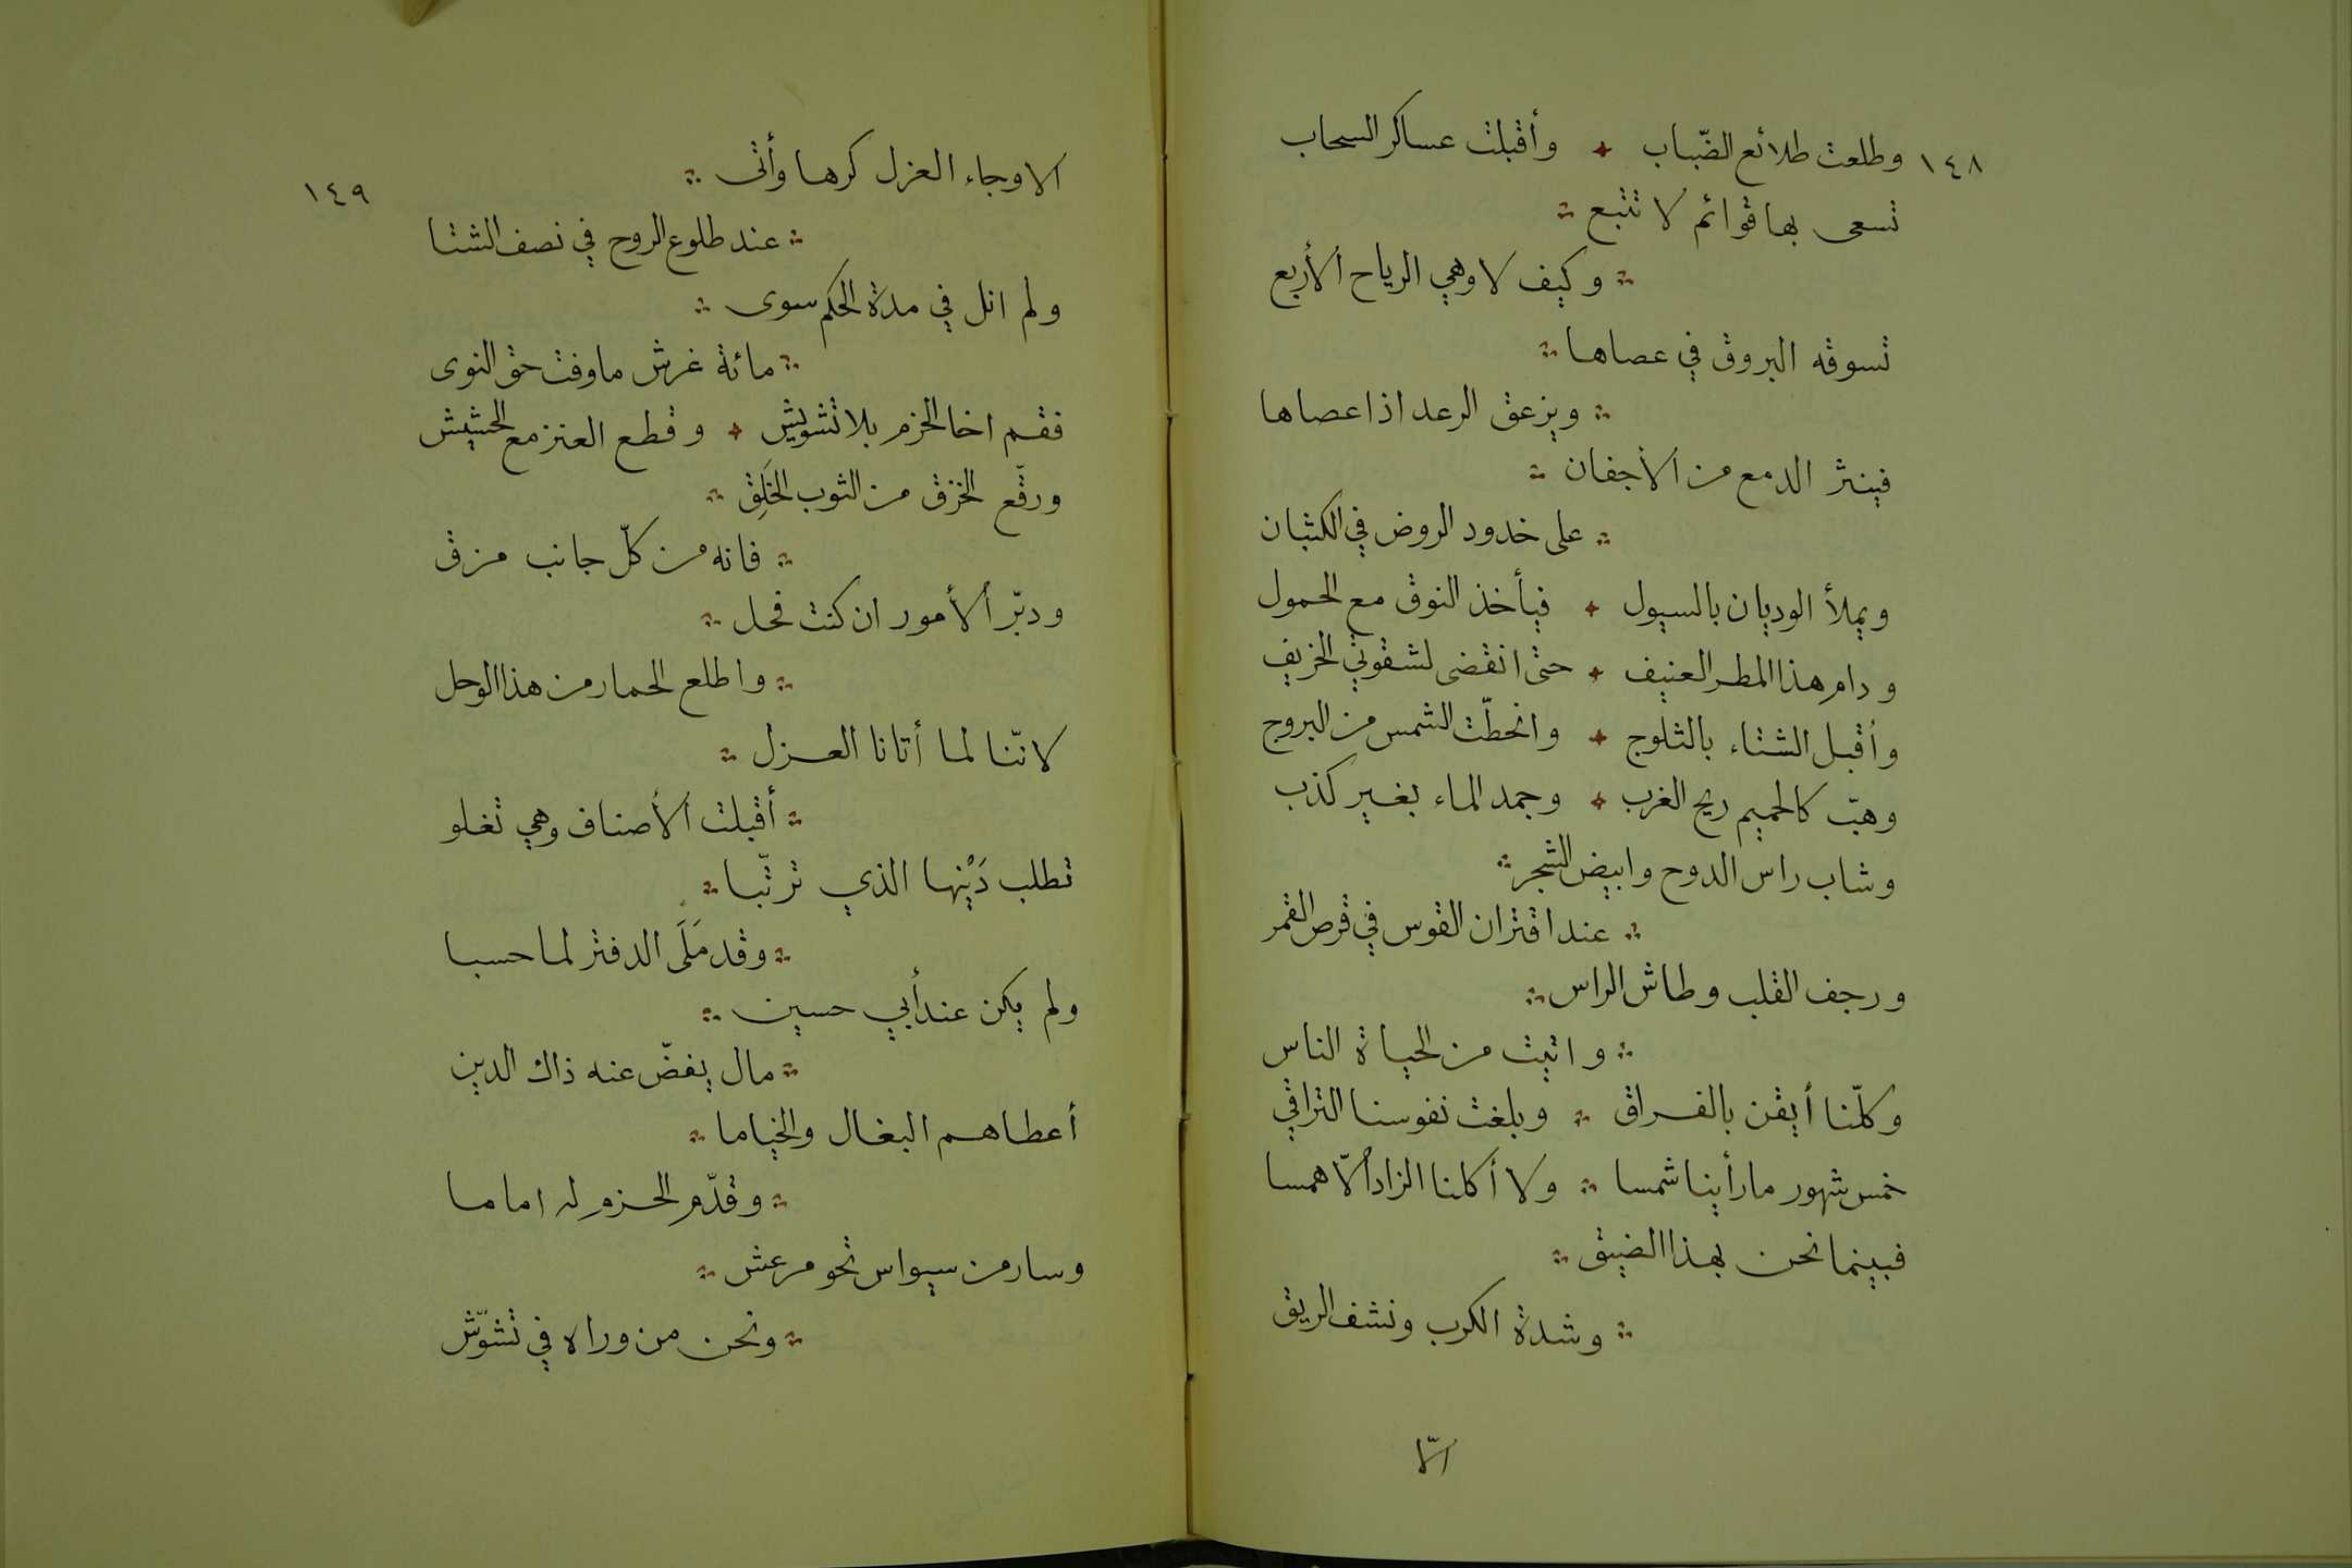 ١٤٨
وطلعت طلائع الضّباب وأقبلت عساكر السحاب
تسعى بها قوائم لا تتبع
وكيف لا وهي الرياح الأربع
تسوقه البروق في عصاها
ويزعق الرعد اذا عصاها
فينثر الدمع من الأجفان
على خدود الروض في الكثبان
ويملأ الوديان بالسيول فيأخذ النوق مع الحمول
ودام هذا المطر العنيف حتى انقضى لشقوتي الخريف
وأقبل الشتاء بالثلوج وانحطّت الشمس من البروج
وهبّ كالحميم ريح الغرب وجمد الماء بغير كذب
وشاب راس الدوح وابيض الشجر
عند اقتران القوس في قرص القمر
ورجف القلب وطاش الراس
واتيت من الحياة الناس
وكلّنا أيقن بالفراق وبلغت نفوسنا التراقي
خمس شهور ما رأينا شمسا ولا أكلنا الزاد ألّا همسا
فبينما نحن بهذا الضيق
وشدة الكرب ونشف الريق
الّا
١٤٩
الا وجاء العزل كرها وأتى
عند طلوع الروح في نصف الشتا
ولم انل في مدة الحكم سوى
مائة غرش ما وفت حق النوى
فقم اخا الحزم بلا تشويش وقطع العنز مع الحشيش
ورقّع الخزق من الثوب الخَلِق
فانه من كلّ جانب مزق
ودبّر ألأمور ان كنت فحل
واطلع الحمار من هذا الوحل
لانّنا لما أتانا العزل
أقبلت ألأصناف وهي تغلو
تطلب دَيْنها الذي ترتّبا
وقد مَلَى الدفتر لما حسبا
ولم يكن عند أبي حسين
مال يفضّ عنه ذاك الدين
أعطاهم البغال والخياما
وقدّم الحزم له اماما
وسار من سيواس نحو مرعش
ونحن من وراه في تشوّش